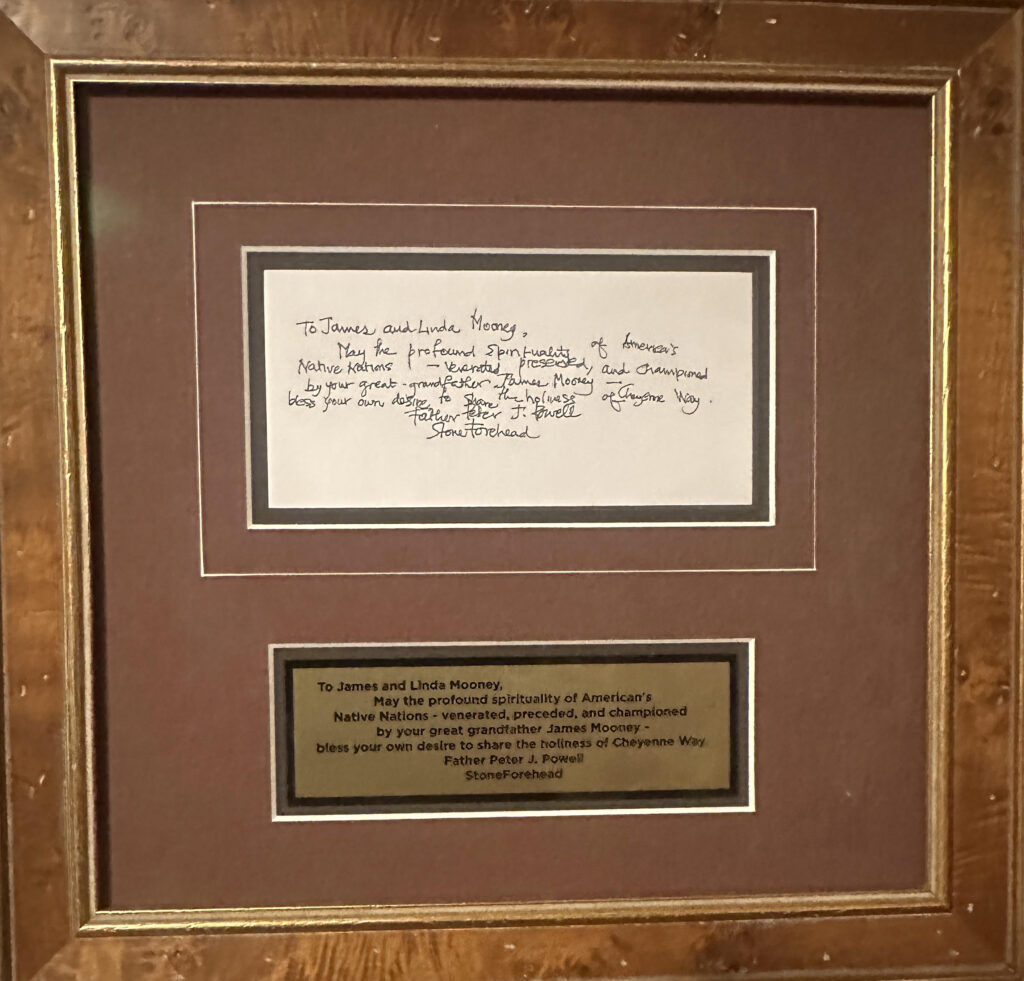 To James and Linda Mooney,
May the profound Spirituality of America's
Native Nations – venerated, preserved, and championed
by your great-grandfather James Mooney —
bless your own desire to share the holiness of Cheyenne Way.
Father Peter J. Powell
Stone Forehead
To James and Linda Mooney,
May the profound spirituality of American's
Native Nations - venerated, preceded, and championed
by your great grandfather James Mooney -
bless your own desire to share the holiness of Cheyenne Way
Father Peter J. Powell
StoneForehead